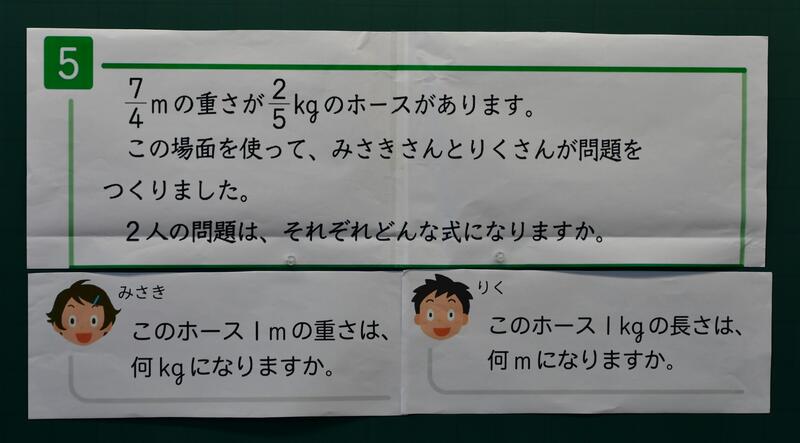 5
7/4mの重さが2/5kgのホースがあります。
この場面を使って、みさきさんとりくさんが問題を
つくりました。
2人の問題は、それぞれどんな式になりますか。
みさき
このホース1mの重さは、
何kgになりますか。
りく
このホース1kgの長さは、
何mになりますか。